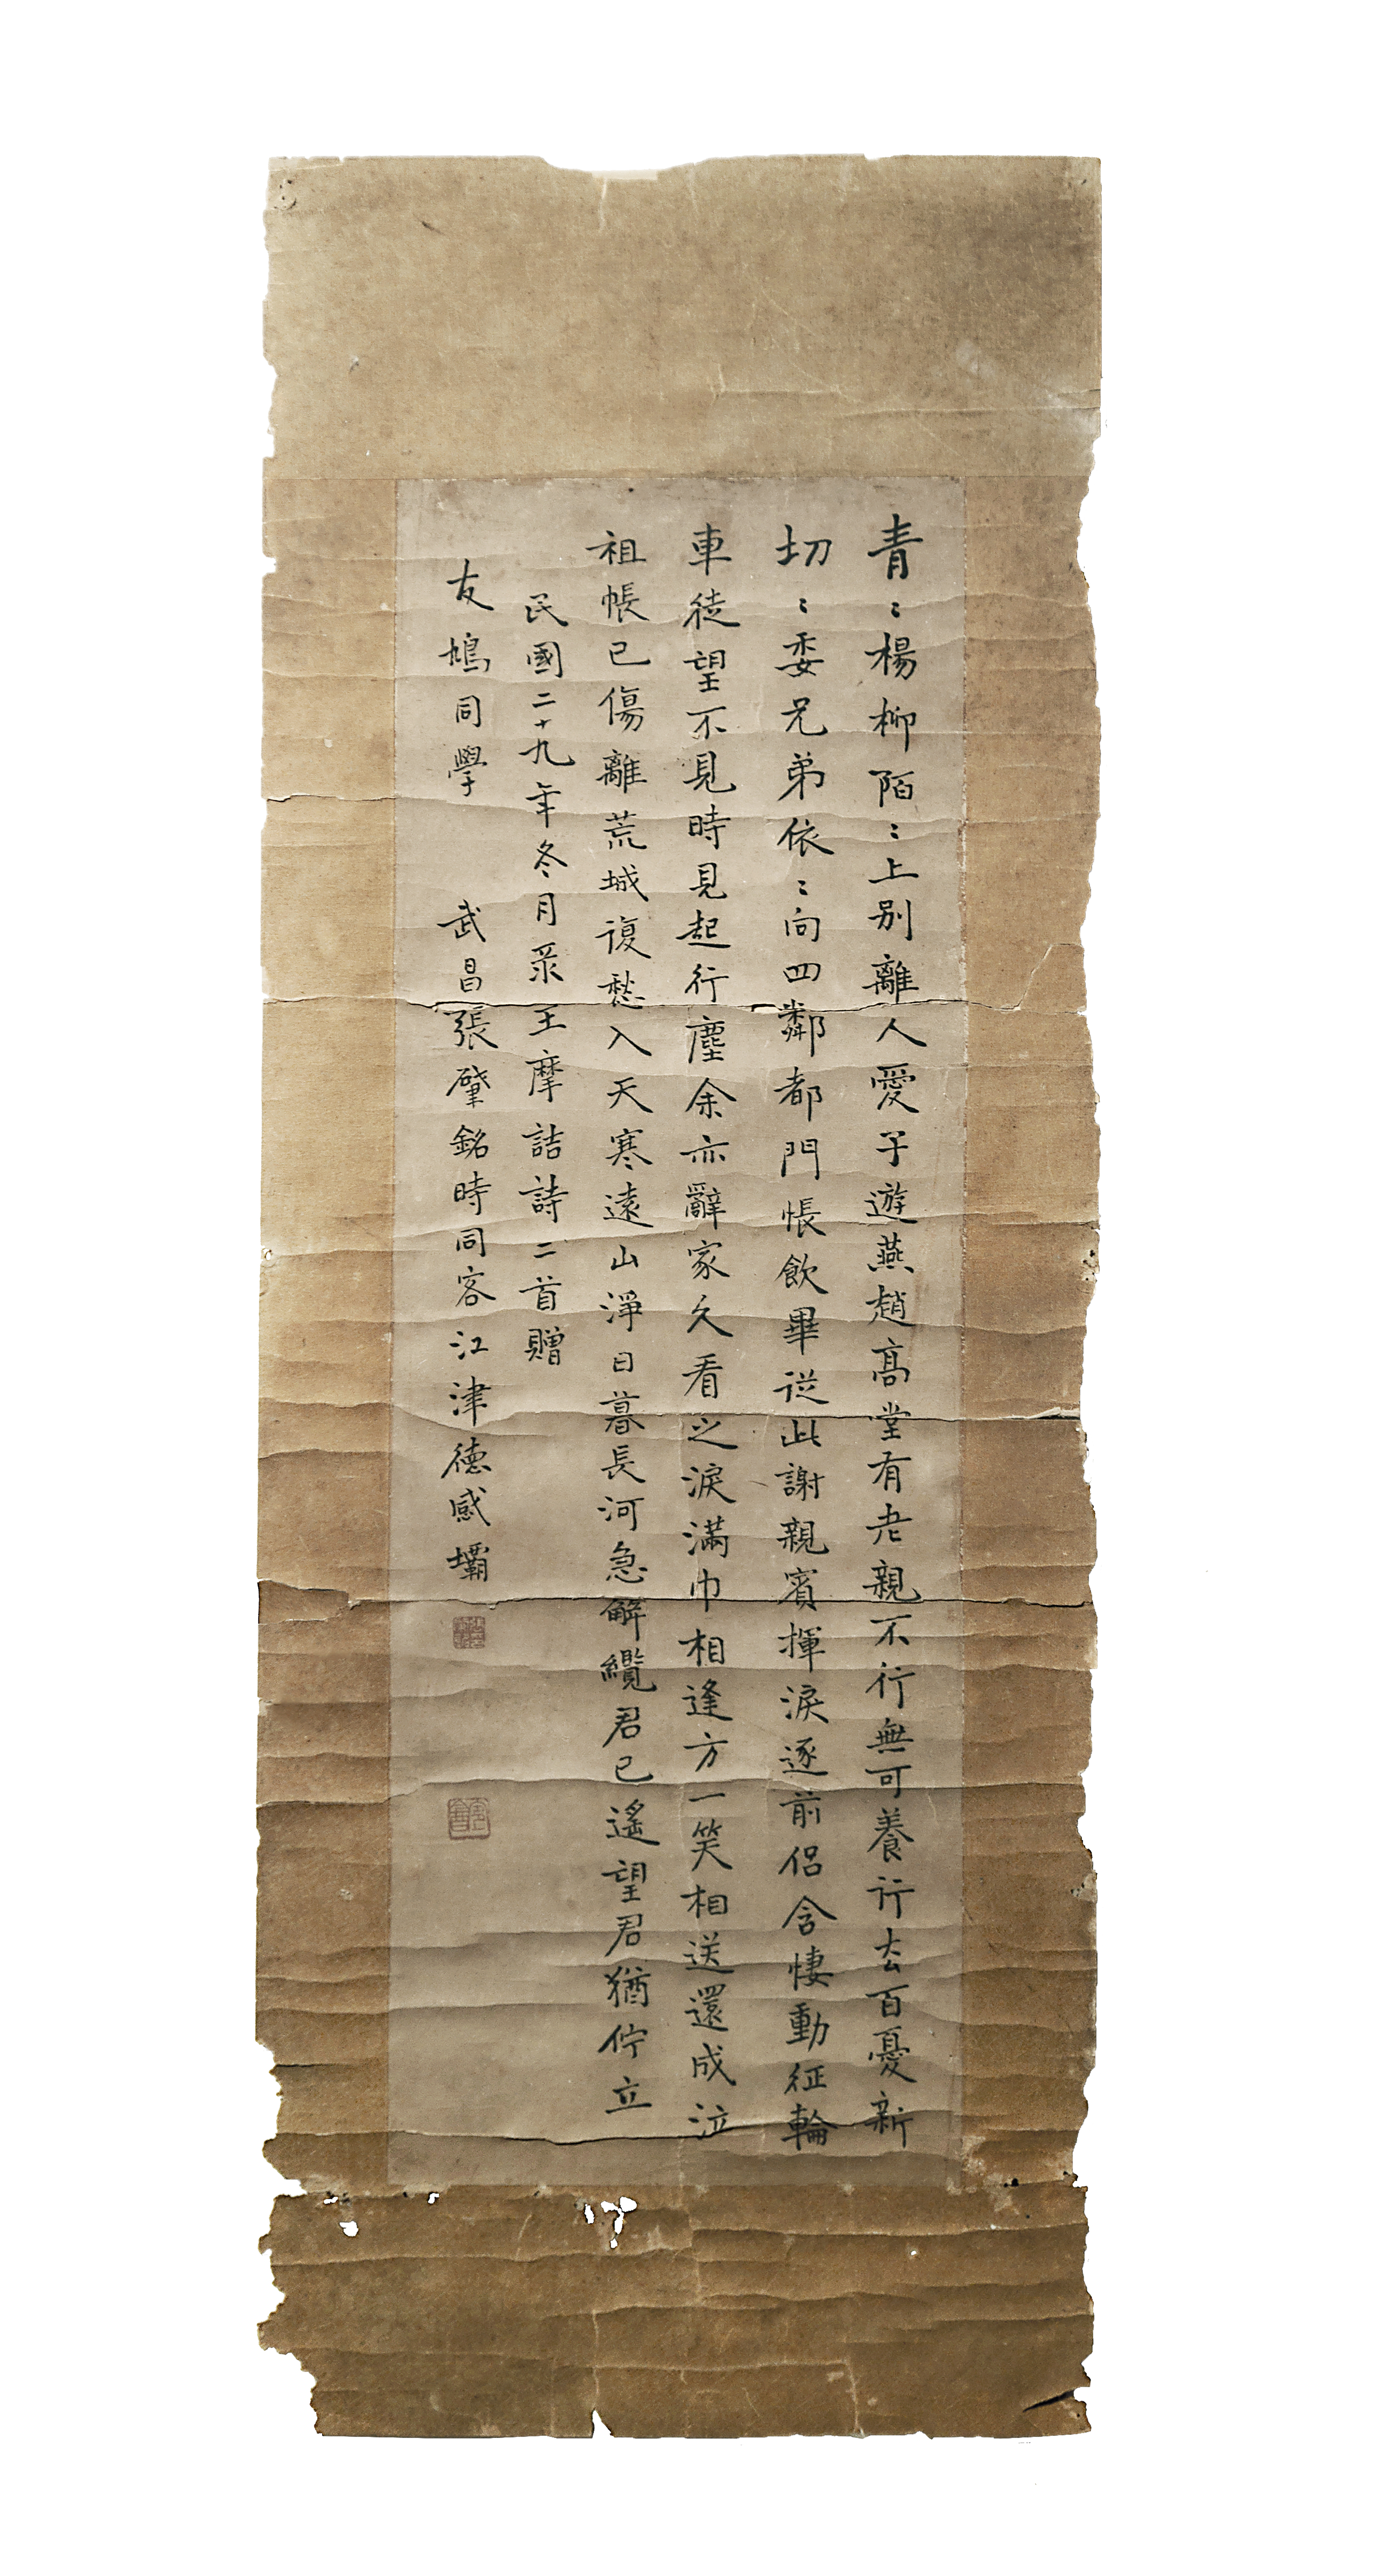 青〻楊柳陌〻上别離人愛子遊燕趙高堂有老親不行無可養行去百憂新
切〻委兄弟依〻向四鄰都門帳飲畢從此謝親賓揮淚逐前侶含悽動征輪
車徒望不見時見起行塵余亦辭家久看之淚滿巾相逢方一笑相送還成泣
祖帳已傷離荒城復愁入天寒遠山淨日暮長河急解纜君已遙望君猶佇立
民國二十九年冬月录王摩詰詩二首贈
友鳩同學 武昌張肇銘時同客江津德感壩